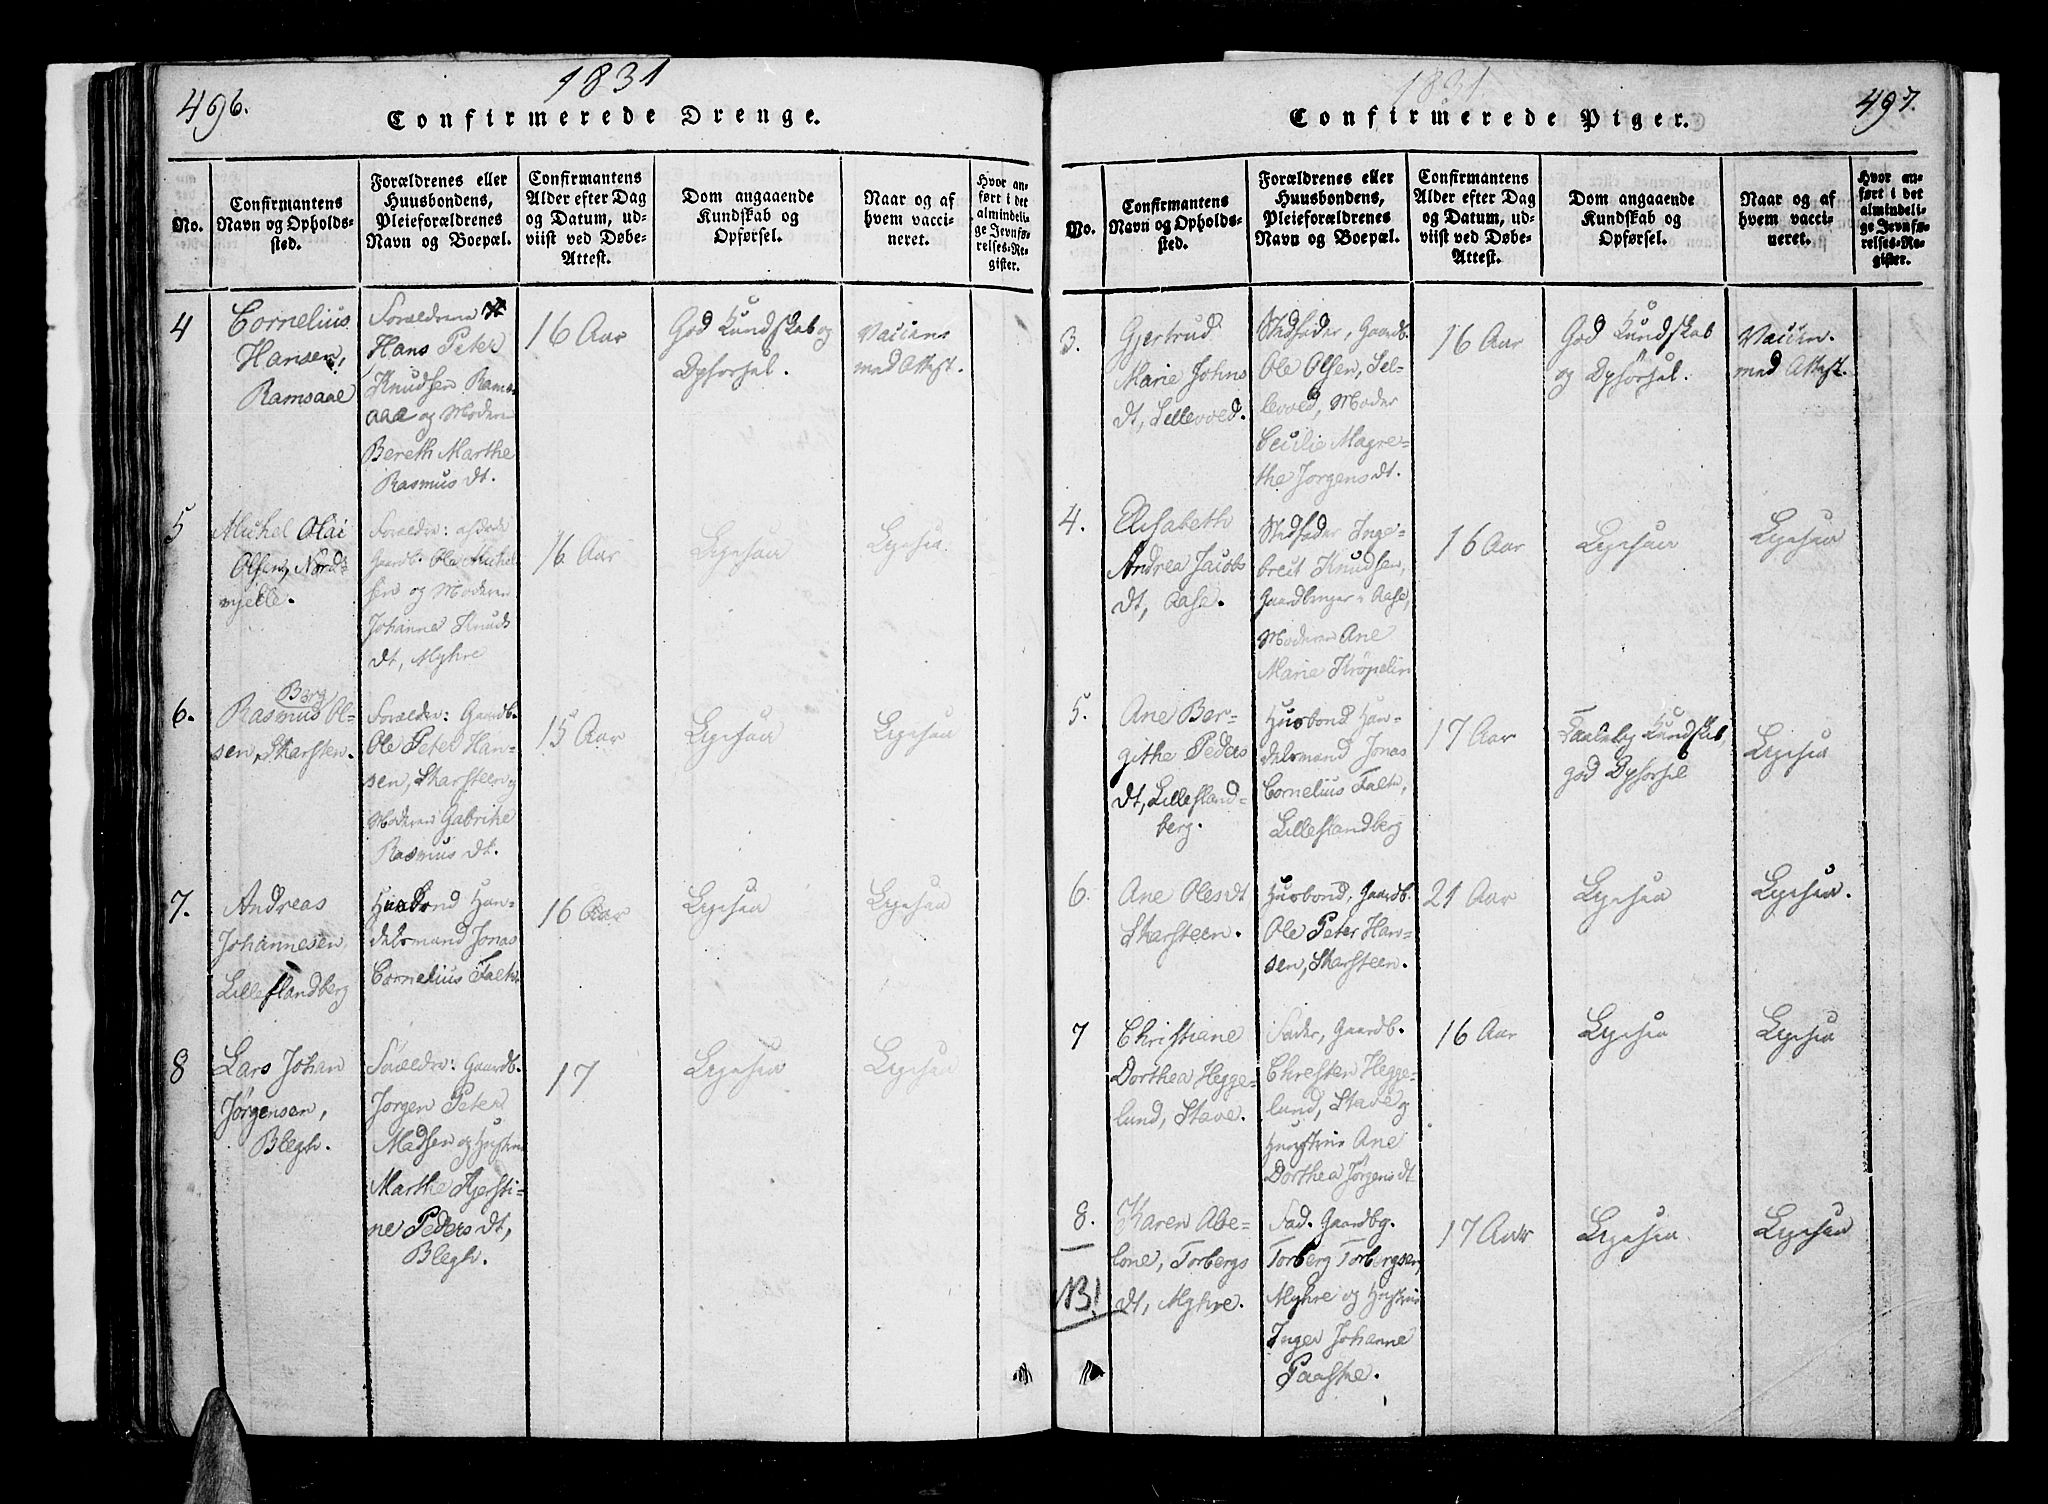 496.
1831
Confirmerede Drenge.
No.
Confirmantens
Navn og Opholds-
sted.
Forældrenes eller
Huusbondens,
Pleieforældrenes
Navn og Boepæl.
Confirmantens
Alder efter Dag
og Datum, ud-
viist ved Døbe-
Attest.
Dom angaaende
Kundskab og
Opførsel.
Naar og af
hvem vacci-
neret.
Hvor an-
ført i det
almindeli-
ge Jevnfø-
relses-Re-
gister.
4
Cornelius
Hansen,
Ramsaae
Forældrene
Hans Peter
Knudsen Rams-
aae og Moderen
Bereth Marthe
Rasmusdt.
16 Aar
God Kundskab og
Opførsel.
Vaccine
med Attest.
5
Michel Olai
Olsen, Nord-
mjelle.
Forældre: afdøde
Gaardb. Ole Michel-
sen og Moderen
Johanne Knuds
dt, Myhre
16 Aar
Ligesaa
Ligesaa
6.
Berg
Rasmus Ol-
sen, Skarsten.
Forældre: Gaardb.
Ole Peter Han-
sen, Skarsteen og
Moderen Gabrihe
Rasmusdt.
15 Aar
Ligesaa
Ligesaa
7.
Andreas
Johannesen
Lilleflandberg
Husbond Han-
delsmand Jonas
Cornelius Falch.
16 Aar
Ligesaa
Ligesaa
8
Lars Johan
Jørgensen,
Blegh.
Forældre: Gaardb.
Jørgen Peter
Madsen og Hustrue
Marthe Kjersti-
ne Pedersdt,
Blegh.
17
Ligesaa
Ligesaa
1831.
497.
Confirmerede Piger.
No.
Confirmantens
Navn og Opholds-
sted.
Forældrenes eller
Huusbondens,
Pleieforældrenes
Navn og Boepæl.
Confirmantens
Alder efter Dag
og Datum, ud-
viist ved Døbe-
Attest.
Dom angaaende
Kundskab og
Opførsel.
Naar og af
hvem vacci-
neret.
Hvor an-
ført i det
almindeli-
ge Jevnfø-
relses-Re-
gister.
3.
Gjertrud
Marie Johns
dt, Sellevold.
Stedfader, Gaardb.
Ole Olsen, Sel-
levold, Moder
Cecilie Magre-
the Jørgensdt.
16 Aar
God Kundskab
og Opførsel.
Vaccin.
med Attest.
4.
Elisabeth
Andrea Jacobs
dt, Aase.
Stedfader Inge-
breit Knudsen,
Gaardbruger i Aase,
Moderen Ane
Marie Krøpelin
16 Aar
Ligesaa
Ligesaa
5.
Ane Ber-
githe Peders
dt, Lillefland-
berg.
Husbond Han-
delsmand Jonas
Cornelius Falch,
Lilleflandberg
17 Aar
Taalelig Kundskab,
god Opførsel
Ligesaa
6.
Ane Olesdt
Skarsteen.
Husbond, Gaardb.
Ole Peter Han-
sen, Skarsteen.
21 Aar
Ligesaa
Ligesaa.
7
Christiane
Dorthea Hegge-
lund, Stave.
Fader, Gaardb.
Christen Hegge-
lund, Stave og
Hustrue Ane
Dorthea Jørgensdt
16 Aar
Ligesaa
Ligesaa
8.
NB!
Karen Abe-
lone, Torbergs
dt, Myhre.
Fad. Gaardbg.
Torberg Torbergsen,
Myhre og Hustrue
Inger Johanne
Paaske.
17 Aar
Ligesaa
Ligesaa